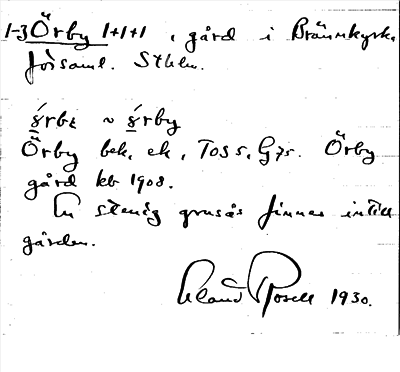 1-3 Örby 1+1+1, gård i Brännkyrka
församl. Sthlm.
ǵrbɛ ~ ǵrby
Örby bek. ek, Toss, G7r. Örby
gård kb 1908.
En stenig grusås finnes intill
gården.
1930.